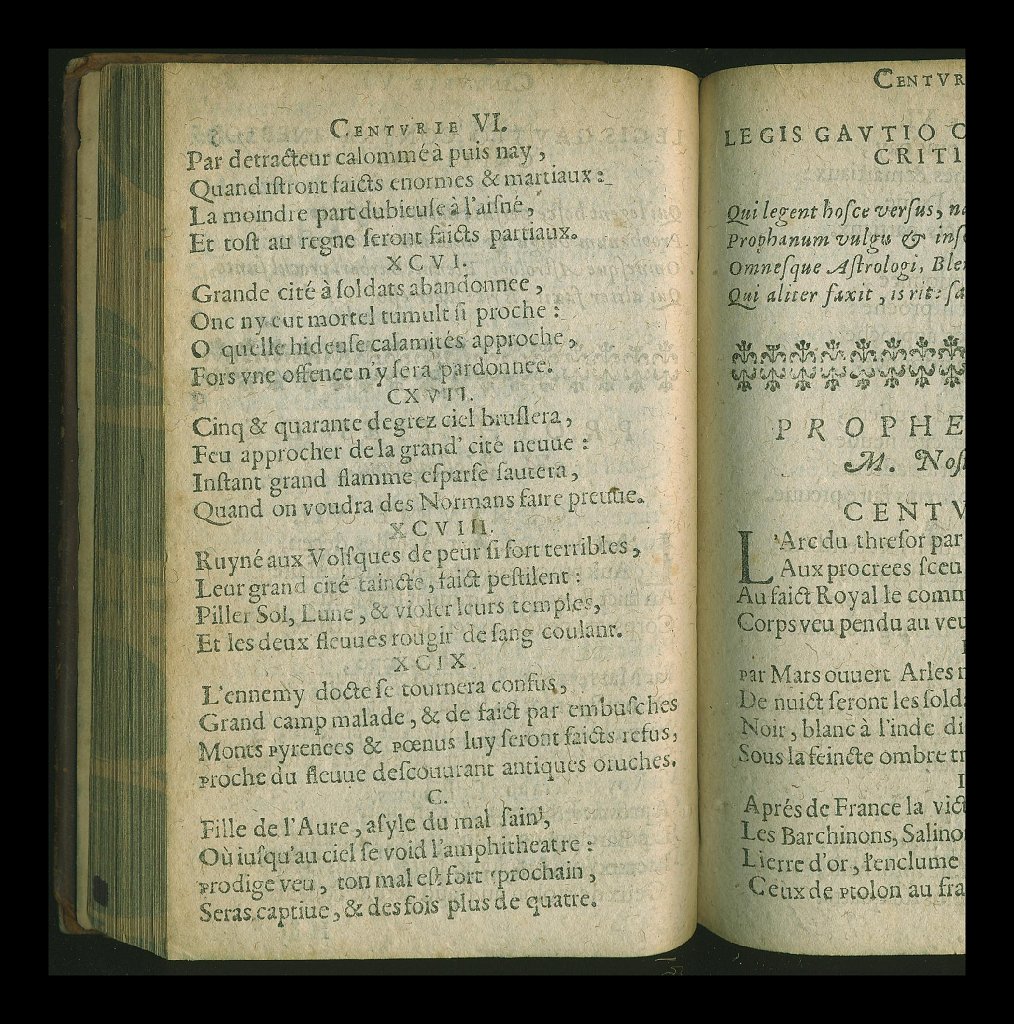 CENTVRIE VI.
Par detracteur calommé à puis nay,
Quand iſtront faicts enormes & martiaux:
La moindre part dubieuſe à l'aiſné,
Et toſt au regne ſeront faicts partiaux.
XCVI.
Grande cité à ſoldats abandonnee,
Onc ny eut mortel tumult ſi proche:
O quelle hideuſe calamités approche,
Fors vne offence n'y ſera pardonnee.
CXVII.
Cinq & quarante degrez ciel bruſlera,
Feu approcher de la grand' cité neuue:
Inſtant grand flamme eſparſe ſautera,
Quand on voudra des Normans faire preuue.
XCVIII.
Ruyné aux Volſques de peur ſi fort terribles,
Leur grand cité taincte, faict peſtilent:
Piller Sol, Lune, & violer leurs temples,
Et les deux fleuues rougir de ſang coulant.
XCIX.
L'ennemy docte ſe tournera confus,
Grand camp malade, & de faict par embuſches
Monts Pyrenees & Pœnus luy ſeront faicts refus,
Proche du fleuue deſcouurant antiques oruches.
C.
Fille de l'Aure, aſyle du mal ſain,
Où iuſqu'au ciel ſe void l'amphitheatre:
Prodige veu, ton mal eſt fort prochain,
Seras captiue, & des fois plus de quatre.
CENTVR
LEGIS GAVTIO C
CRITI
Qui legent hoſce verſus, n
Prophanum vulgu & inſ
Omneſque Aſtrologi, Ble
Qui aliter faxit, is rit: ſa
PROPHE
M. Noſ
CENTV
L'Arc du threſor par
Aux procrees ſceu
Au faict Royal le comm
Corps veu pendu au veu
Par Mars ouuert Arles
De nuict ſeront les ſold
Noir, blanc à l'inde di
Sous la feincte ombre tr
Aprés de France la vict
Les Barchinons, Salino
Lierre d'or, l'enclume
Ceux de Ptolon au fra